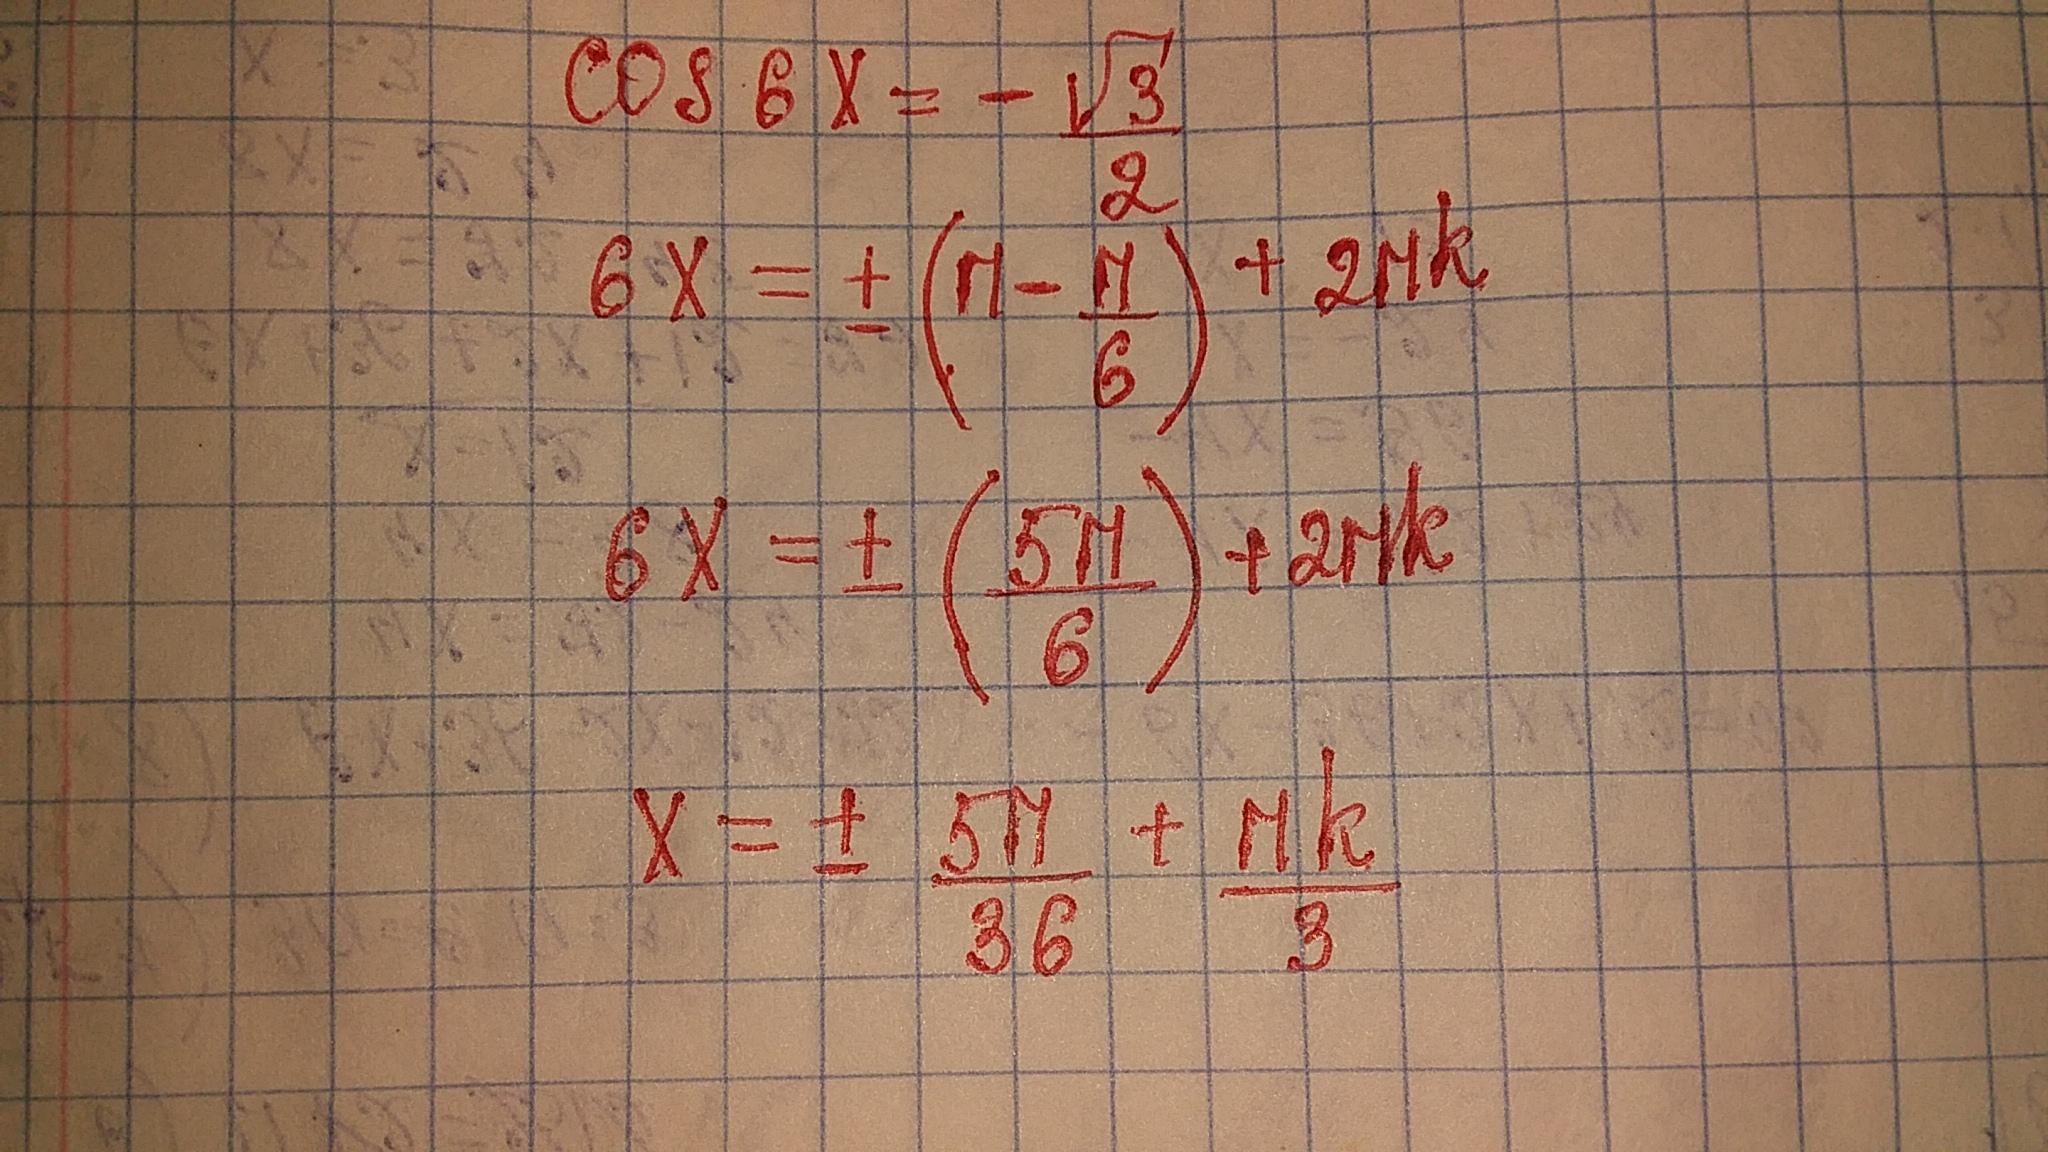 cos 6x = - √3/2
6x = ± (π - π/6) + 2πk
6x = ± (5π/6) + 2πk
x = ± 5π/36 + πk/3